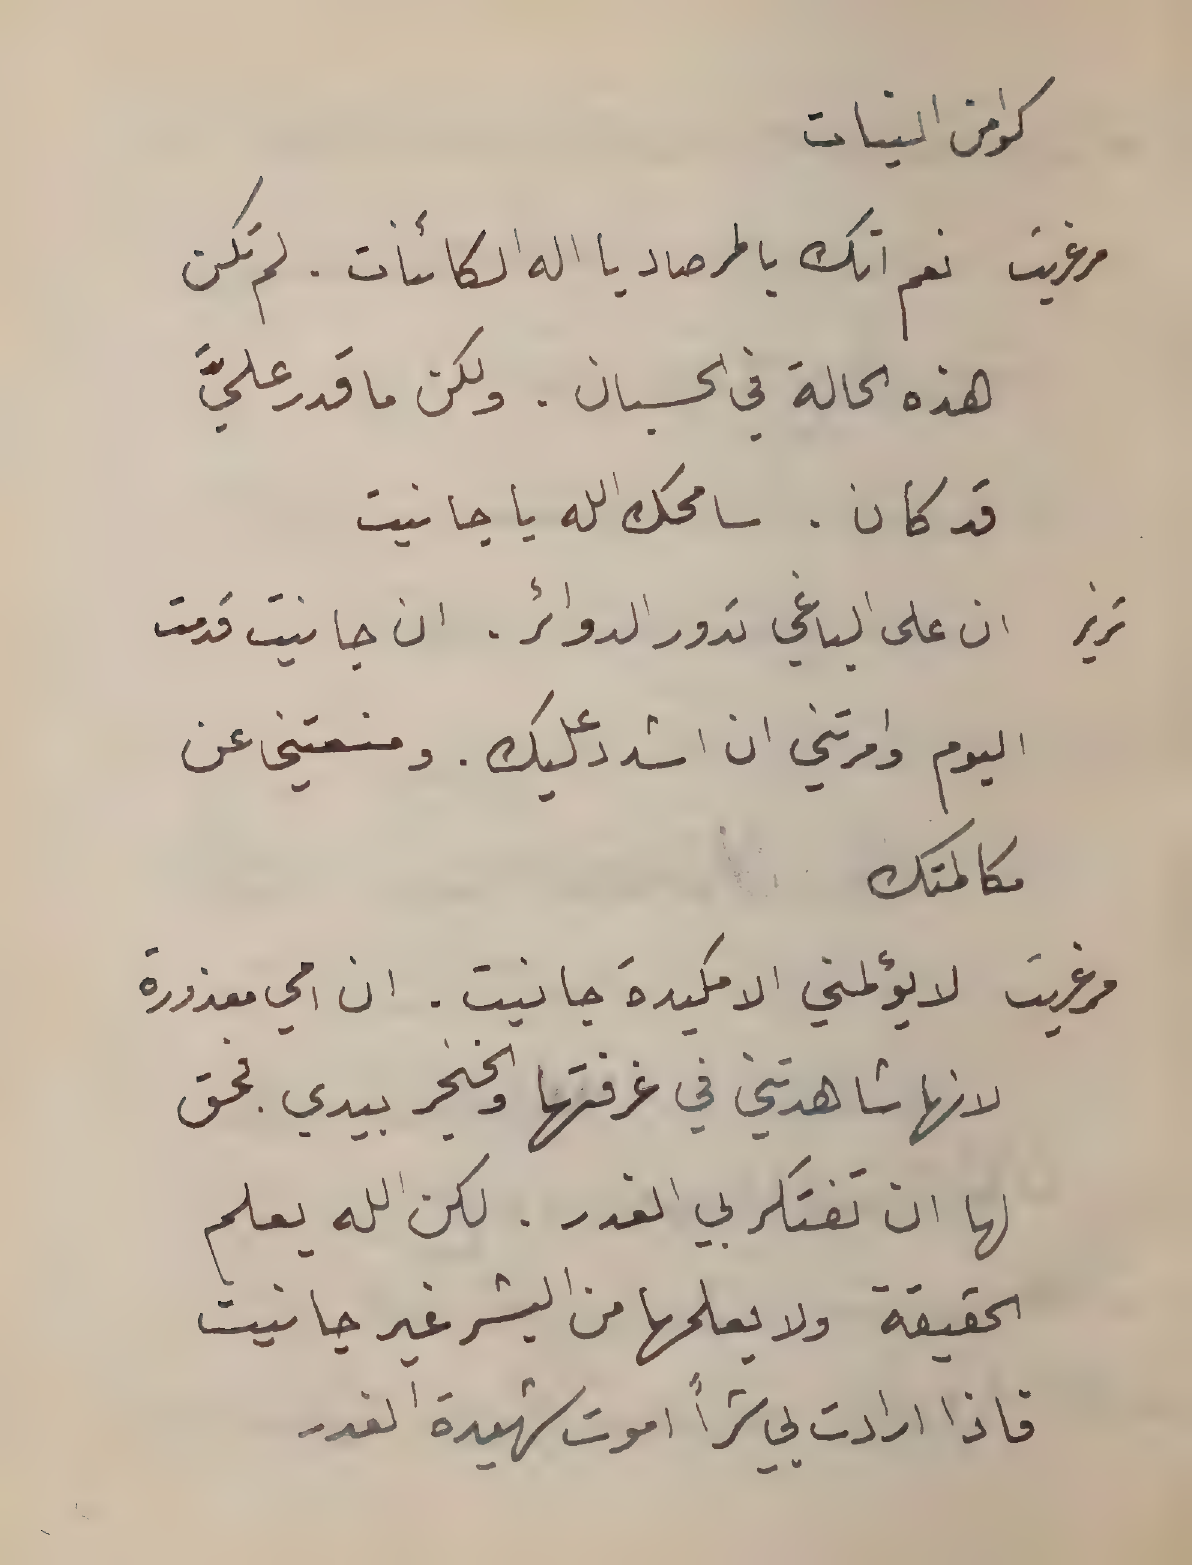 كوامن النيات
مرغريت نعم انك بالمرصاد يا اله الكائنات . لم تكن
هذه الحالة في الحسبان . ولكن ما قدر عليَّ
قد كان . سامحك الله يا جانيت
تريز ان على الباغي تدور الدوائر . ان جانيت قدمت
اليوم وامرتني ان اشدد عليك . ومنعتني عن
مكالمتك
مرغريت لا يؤلمني الا مكيدة جانيت . ان امي معذورة
لانها شاهدتني في غرفتها والخنجر بيدي . فحق
لها ان تفتكر بي الغدر . لكن الله يعلم
الحقيقة ولا يعلمها من البشر غير جانيت
فاذا ارادت بي شراً اموت شهيدة الغدر